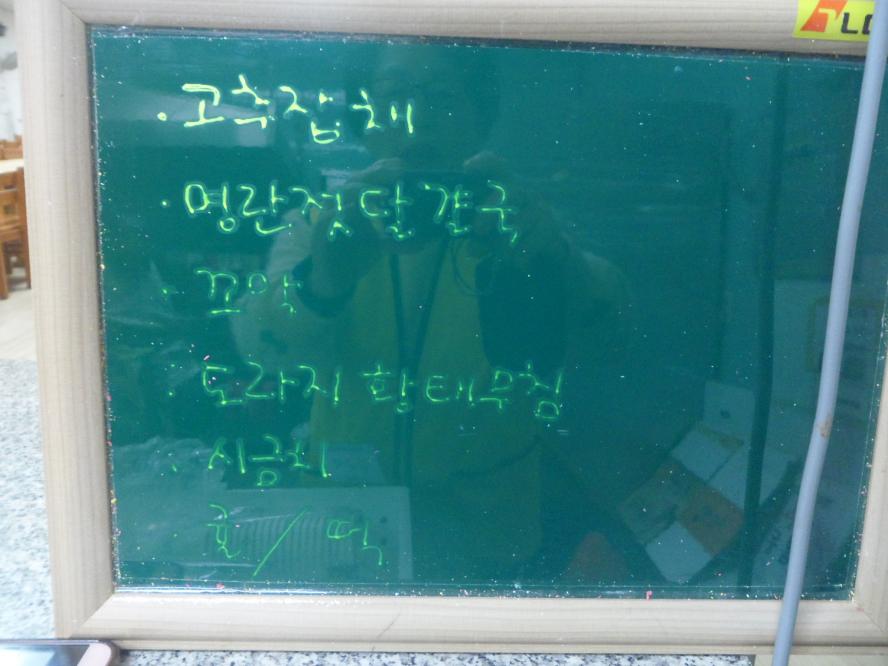 · 고추잡채
· 명란젓달걀국
· 꼬막
· 도라지 황태무침
· 시금치
· 귤 / 떡